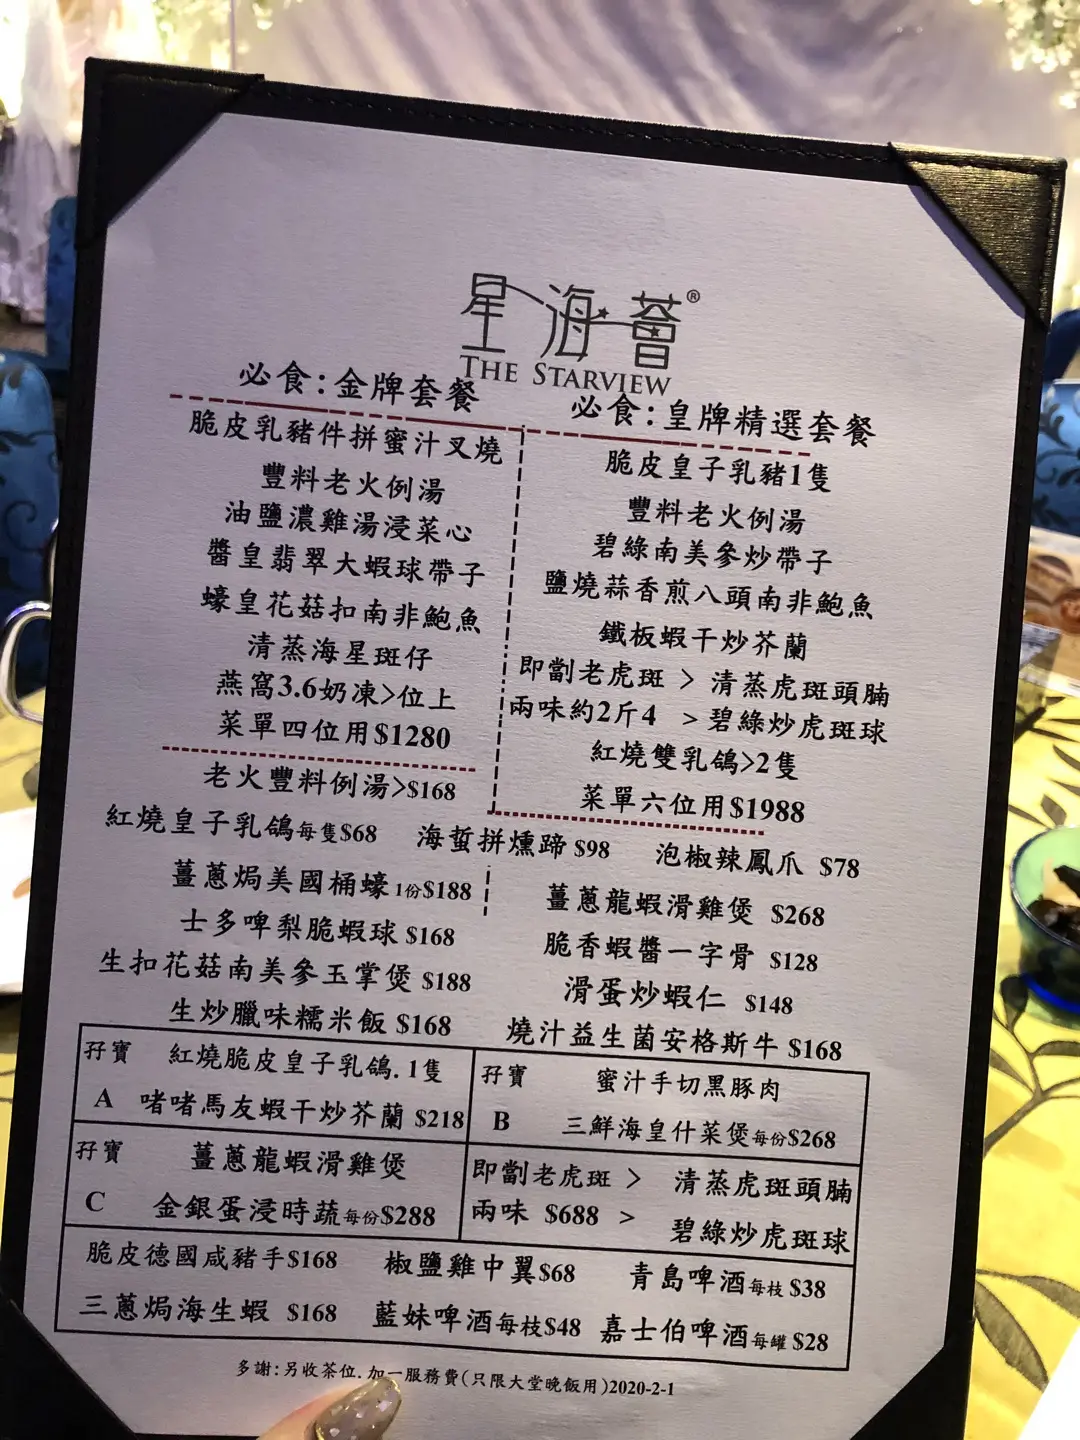 星海薈®
THE STARVIEW
必食:金牌套餐
脆皮乳豬件拼蜜汁叉燒
豐料老火例湯
油鹽濃雞湯浸菜心
醬皇翡翠大蝦球帶子
蠔皇花菇扣南非鮑魚
清蒸海星斑仔
燕窩3.6奶凍>位上
菜單四位用$1280
必食:皇牌精選套餐
脆皮皇子乳豬1隻
豐料老火例湯
碧綠南美參炒帶子
鹽燒蒜香煎八頭南非鮑魚
鐵板蝦干炒芥蘭
即劏老虎斑 > 清蒸虎斑頭腩
兩味約2斤4 > 碧綠炒虎斑球
紅燒雙乳鴿>2隻
菜單六位用$1988
老火豐料例湯>$168
紅燒皇子乳鴿每隻$68 海蜇拼燻蹄 $98 泡椒辣鳳爪 $78
薑蔥焗美國桶蠔1份$188 薑蔥龍蝦滑雞煲 $268
士多啤梨脆蝦球 $168 脆香蝦醬一字骨 $128
生扣花菇南美參玉掌煲 $188 滑蛋炒蝦仁 $148
生炒臘味糯米飯 $168 燒汁益生菌安格斯牛 $168
孖寶 紅燒脆皮皇子乳鴿.1隻
A 啫啫馬友蝦干炒芥蘭 $218
孖寶 蜜汁手切黑豚肉
B 三鮮海皇什菜煲每份$268
孖寶 薑蔥龍蝦滑雞煲
C 金銀蛋浸時蔬每份$288
即劏老虎斑 > 清蒸虎斑頭腩
兩味 $688 > 碧綠炒虎斑球
脆皮德國咸豬手$168 椒鹽雞中翼$68 青島啤酒每枝 $38
三蔥焗海生蝦 $168 藍妹啤酒每枝$48 嘉士伯啤酒每罐 $28
多謝:另收茶位.加一服務費(只限大堂晚飯用)2020-2-1